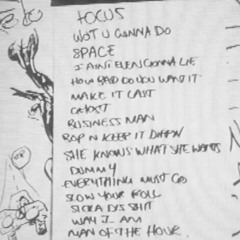 FOCUS
WOT U GONNA DO
SPACE
I AINT EVEN GONNA LIE
HOW BAD DO YOU WANT IT
MAKE IT LAST
GHOST
BUSINESS MAN
BOP N KEEP IT DIPPIN
SHE KNOWS WHAT SHE WANTS
DUMMY
EVERYTHING MUST GO
SLOW YOUR ROLL
SICKA DIS SHIT
WAY I AM
MAN OF THE HOUR